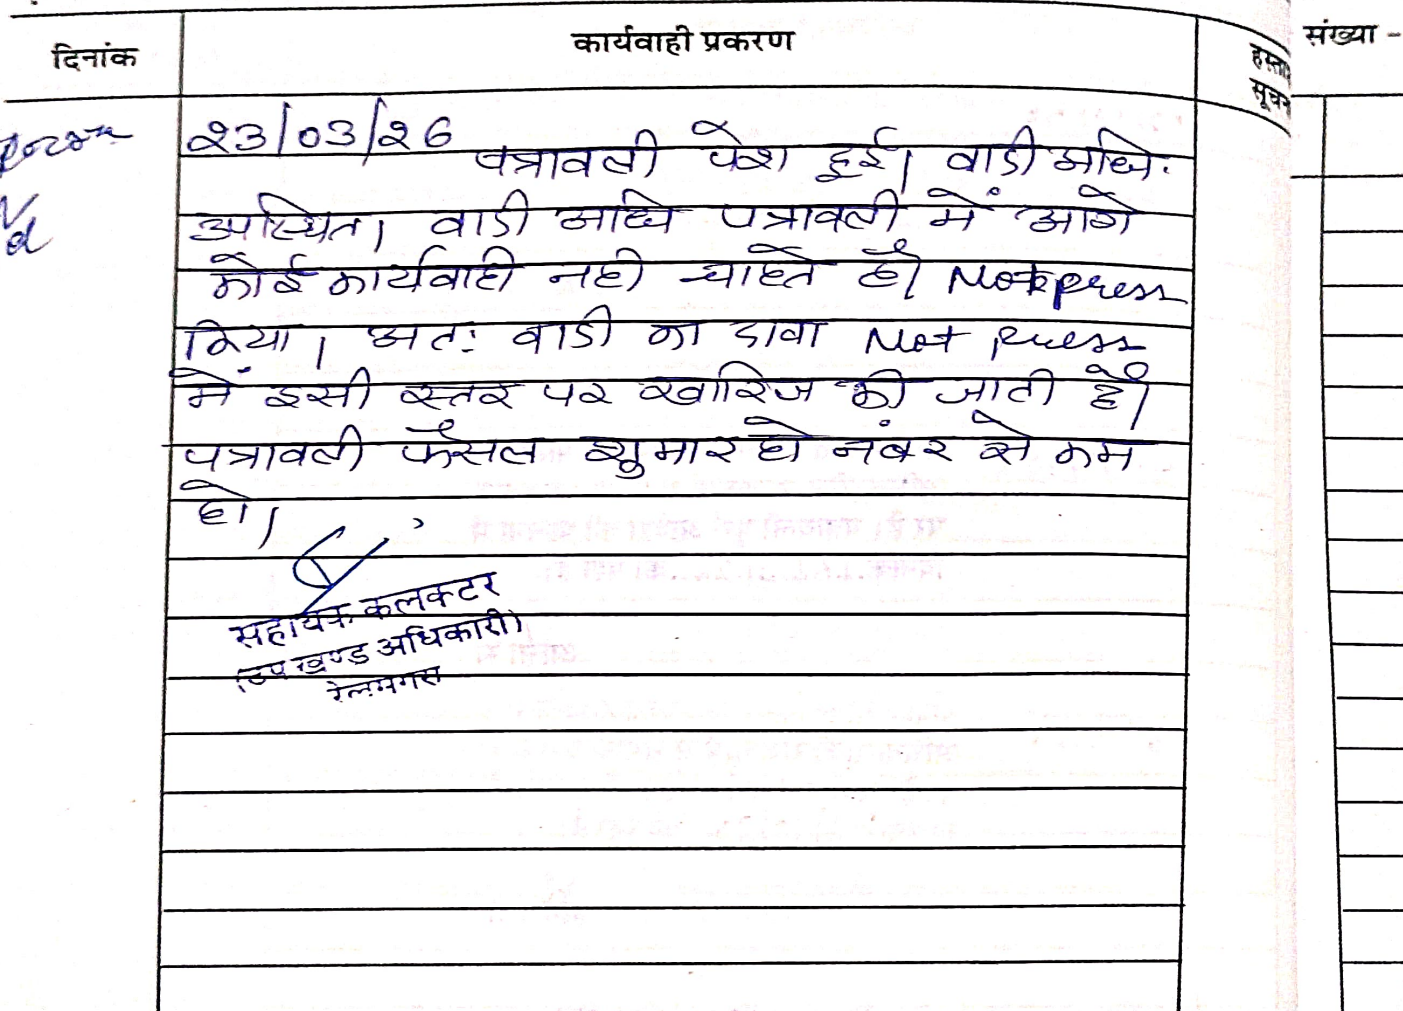 संख्या -
दिनांक
कार्यवाही प्रकरण
23/03/26
पत्रावली पेश हुई। वादी अधि.
उपस्थित। वादी अधि पत्रावली में आगे
कोई कार्यवाही नही चाहते है। Not press
किया। अत: वादी का दावा Not press
में इसी स्तर पर खारिज की जाती है।
पत्रावली फैसल शुमार हो नंबर से कम
हो।
सहायक कलक्टर
(उप खण्ड अधिकारी)